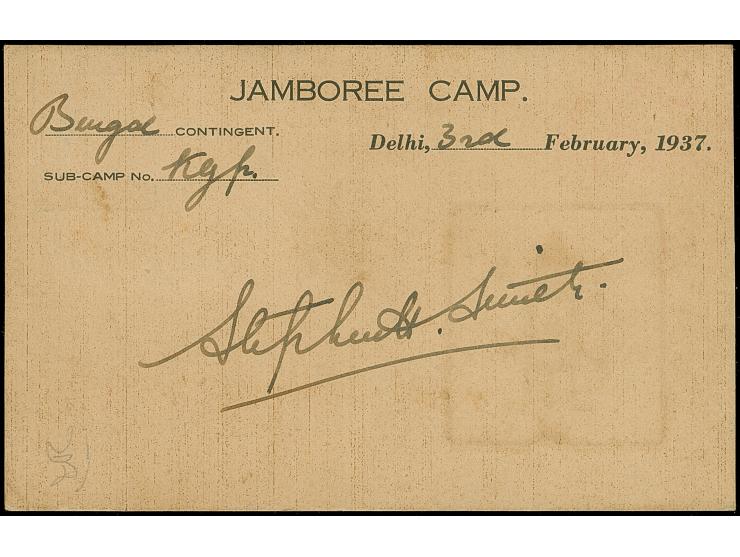 JAMBOREE CAMP.
Bengal CONTINGENT.
Delhi, 3rd February, 1937.
SUB-CAMP No. Kgp.
Stephen H. Smith.